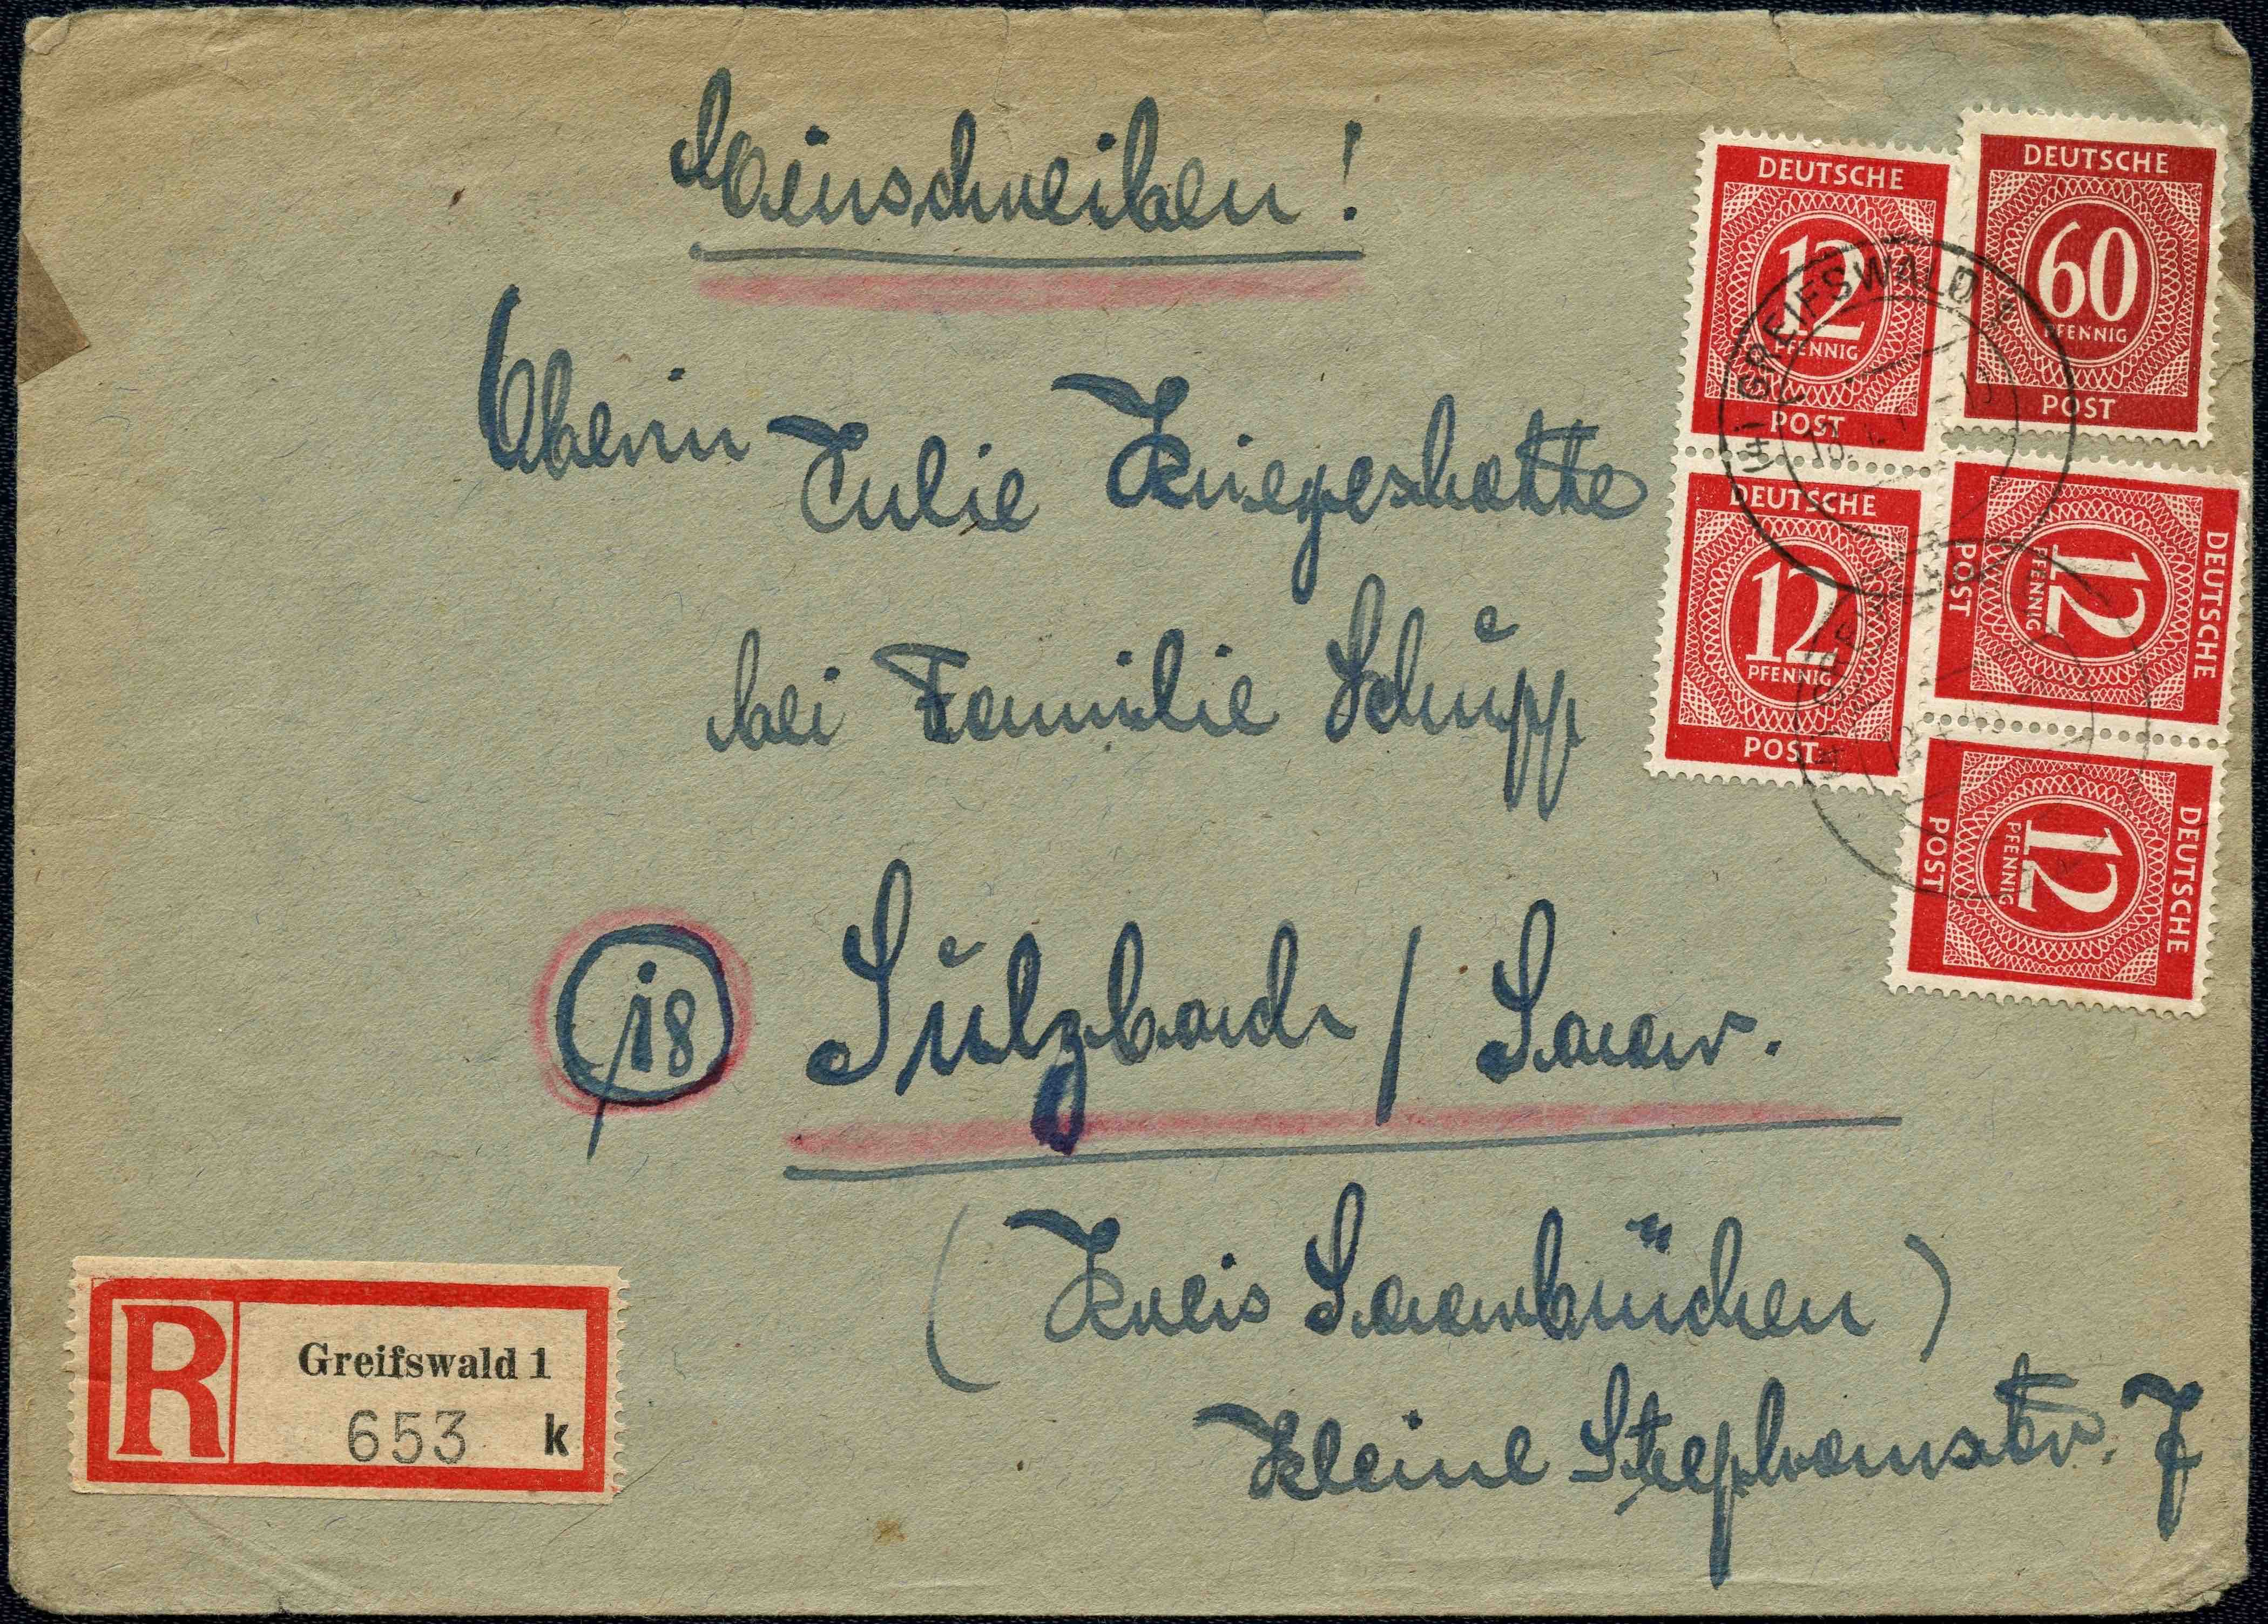 Einschreiben!
Oberin
Julie Kriegeskotte
bei Familie Schupp
18 Sulzbach / Saar.
(Kreis Saarbrücken)
Kleine Stephanstr. 7
DEUTSCHE
12
PFENNIG
POST
DEUTSCHE
60
PFENNIG
POST
DEUTSCHE
12
PFENNIG
POST
DEUTSCHE
12
PFENNIG
POST
DEUTSCHE
12
PFENNIG
POST
GREIFSWALD 1
R
Greifswald 1
653 k